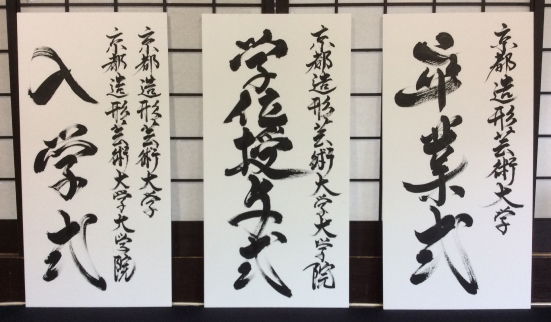 京都造形芸術大学
卒業式
京都造形芸術大学大学院
学位授与式
京都造形芸術大学
京都造形芸術大学大学院
入学式